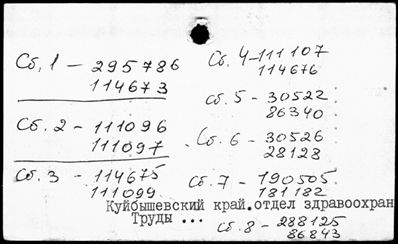 Сб. 1 - 295786
114673
Сб. 2 - 111096
111097
Сб. 3 - 114675
111099
Сб. 4 - 111107
114676
Сб. 5 - 30522
86340
Сб. 6 - 30526
28128
Сб. 7 - 190505
181182
Куйбышевский край.отдел здравоохран
Труды ...
Сб. 8 - 288125
86843